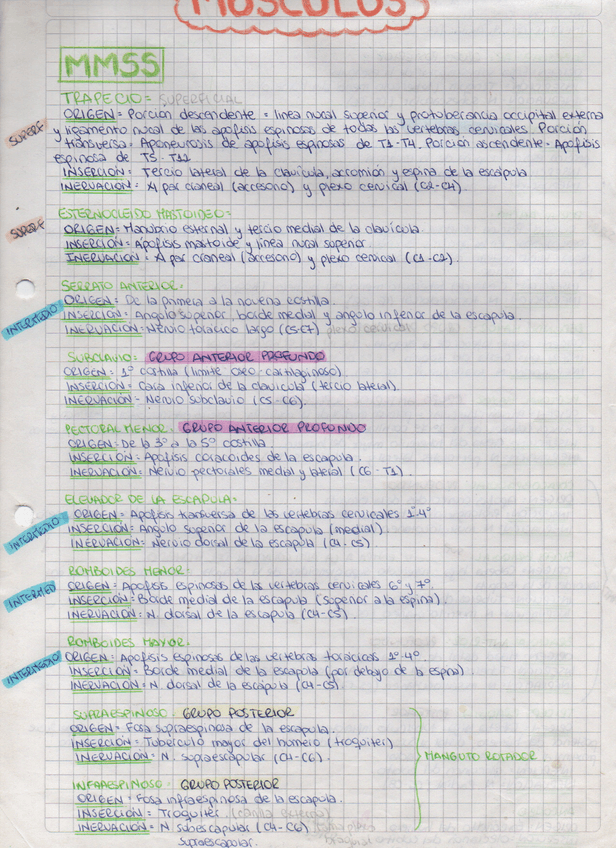 MÚSCULOS
MMSS
TRAPECIO = SUPERFICIAL
SUPERF
ORIGEN = Porción descendente = linea nucal superior y protuberancia occipital externa
y ligamento nucal de las apofisis espinosas de todas las vertebras cervicales. Porcion
transversa = Aponeurosis de apofisis espinosas de T1-T4. Porcion ascendente = Apofisis
espinosa de T5-T12
INSERCIÓN = Tercio lateral de la clavicula, acromion y espina de la escapula
INERVACIÓN = XI par craneal (accesorio) y plexo cervical (C2-C4).
ESTERNOCLEIDO MASTOIDEO =
SUPERF
ORIGEN = Manubrio esternal y tercio medial de la clavicula
INSERCIÓN = Apofisis mastoide y linea nucal superior
INERVACIÓN = XI par craneal (accesorio) y plexo cervical (C1-C2).
SERRATO ANTERIOR.
INTERMEDIO
ORIGEN = De la primera a la novena costilla.
INSERCIÓN = Angulo superior, borde medial y angulo inferior de la escapula.
INERVACIÓN = Nervio toracico largo (C5-C7) plexo cervical
SUBCLAVIO = GRUPO ANTERIOR PROFUNDO
ORIGEN = 1º costilla (limite oseo-cartilaginoso)
INSERCIÓN = Cara inferior de la clavicula (tercio lateral).
INERVACIÓN = Nervio subclavio (C5-C6).
PECTORAL MENOR. GRUPO ANTERIOR PROFUNDO
ORIGEN = De la 3º a la 5º costilla
INSERCIÓN = Apofisis coracoides de la escapula.
INERVACIÓN = Nervio pectorales medial y lateral (C6-T1).
ELEVADOR DE LA ESCAPULA.
INTERMEDIO
ORIGEN = Apofisis transversa de las vertebras cervicales 1º-4º
INSERCIÓN = Angulo superior de la escapula (medial).
INERVACIÓN = Nervio dorsal de la escapula (C4-C5).
ROMBOIDES MENOR.
INTERMED
ORIGEN = Apofisis espinosas de las vertebras cervicales 6º y 7º
INSERCIÓN = Borde medial de la escapula (superior a la espina).
INERVACIÓN = N. dorsal de la escapula (C4-C5).
ROMBOIDES MAYOR.
INTERMEDIO
ORIGEN = Apofisis espinosas de las vertebras toracicas 1º-4º
INSERCIÓN = Borde medial de la escapula (por debajo de la espina).
INERVACIÓN = N. dorsal de la escapula (C4-C5).
SUPRAESPINOSO. GRUPO POSTERIOR
ORIGEN = Fosa supraespinosa de la escapula.
INSERCIÓN = Tuberculo mayor del humero (troquiter)
INERVACIÓN = N. supraescapular (C4-C6).
MANGUTO ROTADOR.
INFRAESPINOSO. GRUPO POSTERIOR
ORIGEN = Fosa infraespinosa de la escapula.
INSERCIÓN = Troquiter
INERVACIÓN = N subescapular (C4-C6)
Supraescapular.